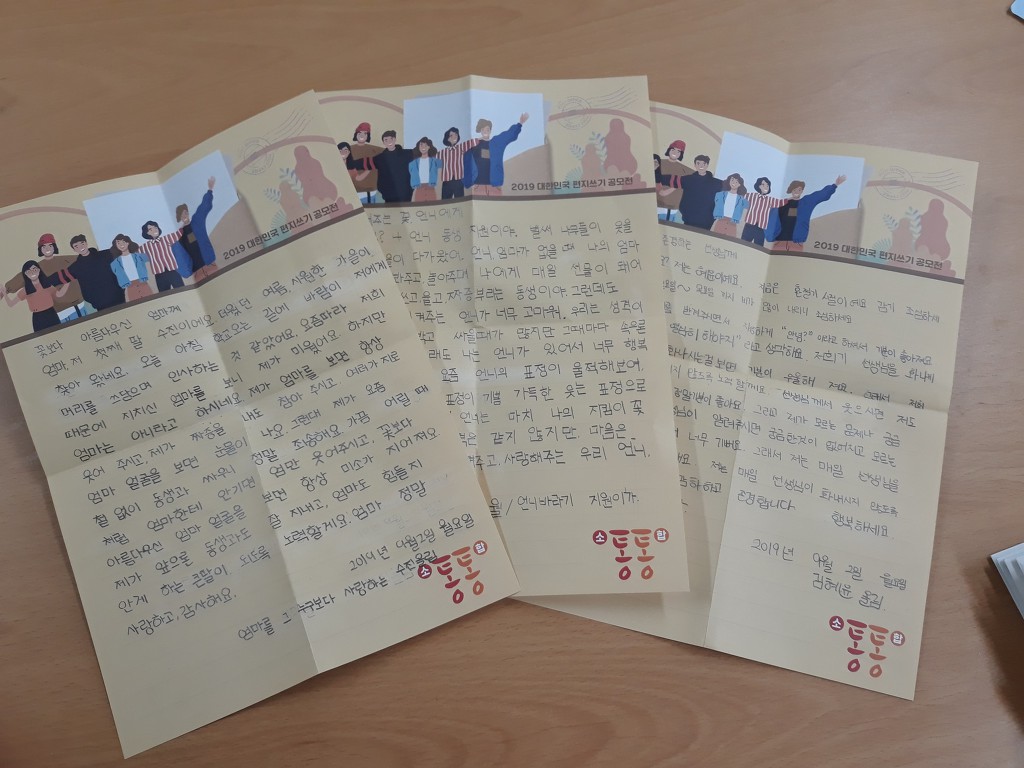 2019 대한민국 편지쓰기 공모전
꽃보다 아름다우신 엄마께
엄마, 저 첫째 딸 수진이에요. 더웠던 여름, 시원한 가을이
찾아 왔네요. 오늘 아침 학교오는 길에 바람이 저에게
머리를 쓰담으며 인사하는 것 같았어요. 요즘따라 저희
때문에 지치신 엄마를 보니 제가 미웠어요. 하지만
엄마는 아니라고 하시네요. 제가 엄마를 보면 항상
웃어 주시고, 제가 짜증을 내도 참아 주시고, 여러가지로
엄마 얼굴을 보면 눈물이 나요. 그런데 제가 요즘
철 없이 동생과 싸우니 정말 죄송해요. 가끔 어릴 때
처럼 엄마한테 안기면 엄만 웃어주시고, 꽃보다
아름다우신 엄마 얼굴을 보면 항상 미소가 지어져요.
제가 앞으로 동생과도 잘 지내고, 엄마도 힘들지
안게 하는 큰딸이 되도록 노력할게요. 엄마 정말
사랑하고, 감사해요.
2019년 9월 2일 월요일
엄마를 그 누구보다 사랑하는 수진올림
소통통합
2019 대한민국 편지쓰기 공모전
주는 꽃 언니에게
언니 동생 지원이야. 벌써 나무들이 옷을
다가왔어. 언니 엄마가 없을 때 나의 엄마
주고, 놀아주고 나에게 대일 선물이 돼어
쓰고 울고 짜증 부리는 동생이야. 그런데도
겨주는 언니가 너무 고마워. 우리는 성격이
싸울때가 많지만 그때마다 속으론
래도 나는 언니가 있어서 너무 행복
요즘 언니의 표정이 울적해보여.
표정이 기쁨 가득한 웃는 표정으로
언니는 마치 나의 지킴이 꽃
같지 않지만 마음은
겨주고, 사랑해주는 우리 언니.
월 / 언니바라기 지원이가.
소통통합
2019 대한민국 편지쓰기 공모전
선생님께
저는 혜윤이에요. 지금은 환절기 시절이에요 감기 조심하세
요일 까지 비가 많이 내리니 조심하세요
반겨주시면서 "안녕?" 이라고 하면서 기분이 좋아져요
열심히 해야지" 라고 생각해요. 저희가 선생님을 화나게
화나시는걸 보면 기분이 우울해 져요. 그래서 저희
않도록 노력 할게요. 선생님께서 웃으시면 저도
정말 기분이 좋아요. 그리고 제가 모르는 문제나 궁금
님이 알려주시면 궁금한것이 없어지고 모르는
너무 기뻐요. 그래서 저는 매일 선생님을
저는 매일 선생님이 화내시지 않도록
존경합니다 행복하세요
2019년 9월 2일 월요일
김혜윤 올림
소통통합